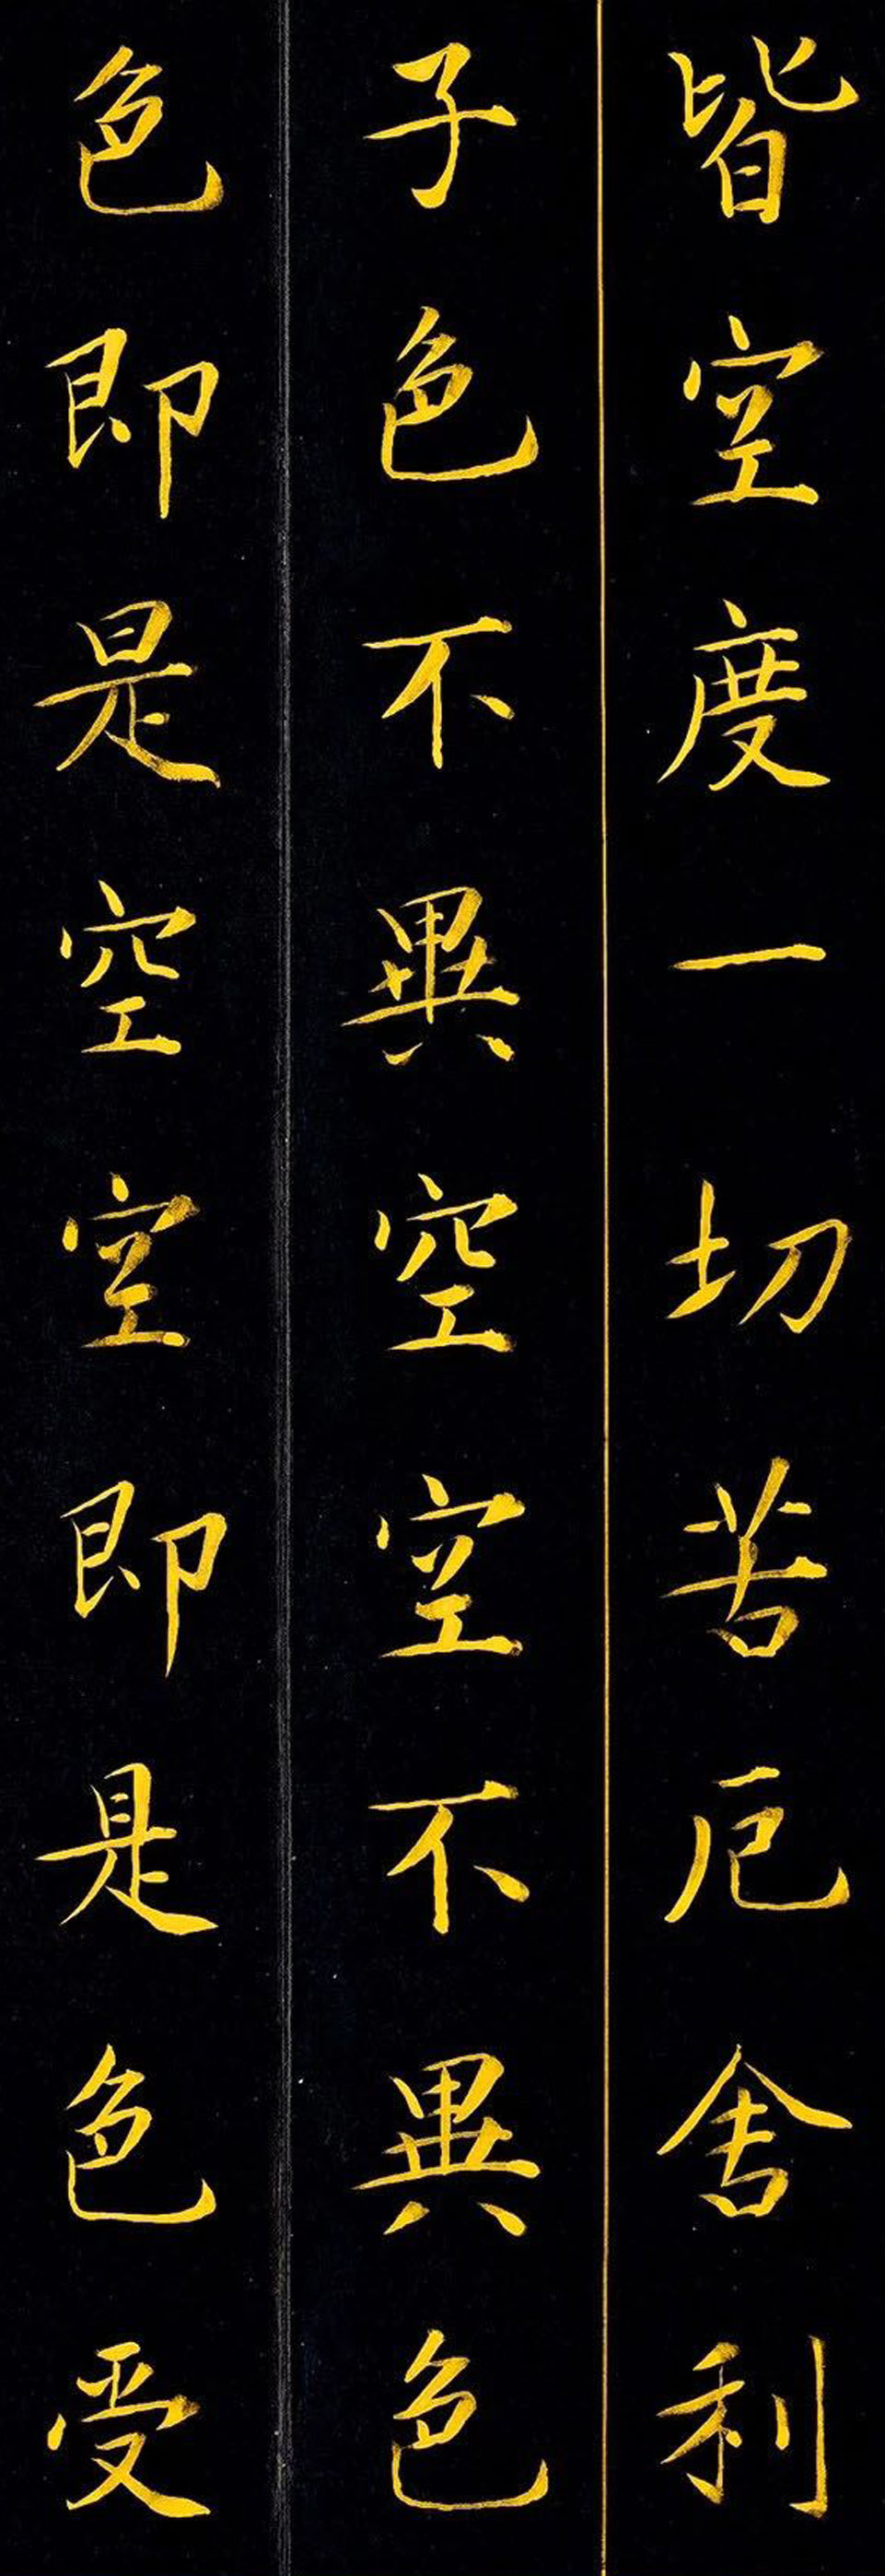 皆空度一切苦厄舍利
子色不異空空不異色
色即是空空即是色受